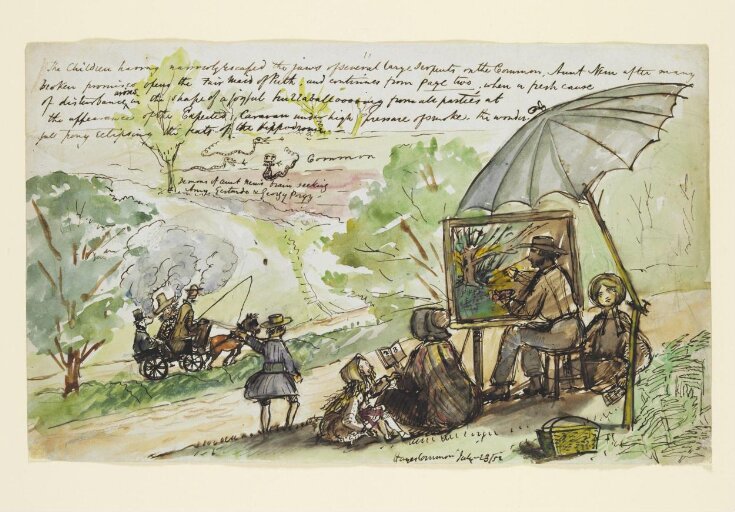 The Children having narrowly escaped the jaws of several large Serpents on the Common, Aunt New after many
broken promises opens the Fair Maid of Perth and continues from page two, when a fresh cause
of disturbance in the shape of a joyful from all parties at
the appearance of the Expected Caravan under high pressure of smoke. the
pony the of the Hippodrome
Common
demons of aunt brain seeking
Amy, Gertrude & Georgy Porgy
Hayes Common July 23/52